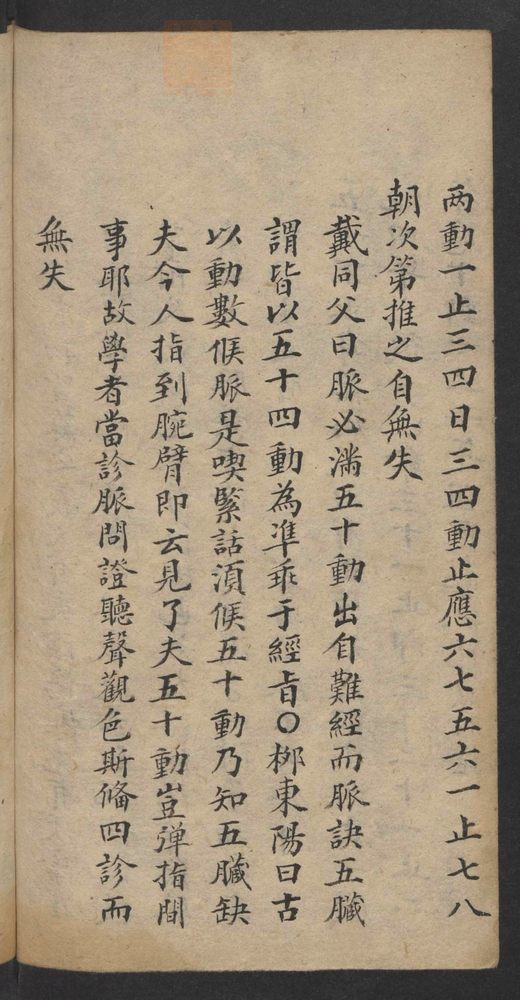 两動一止三四日三四動止應六七五六一止七八
朝次第推之自無失
戴同父曰脈必滿五十動出自難經而脈訣五臟
謂皆以五十四動為準乖于經旨〇桞東陽曰古
以動數候脈是喫緊話須候五十動乃知五臟缺
夫今人指到腕臂即云見了夫五十動豈弹指間
事耶故學者當診脈問證聽聲觀色斯俻四診而
無失